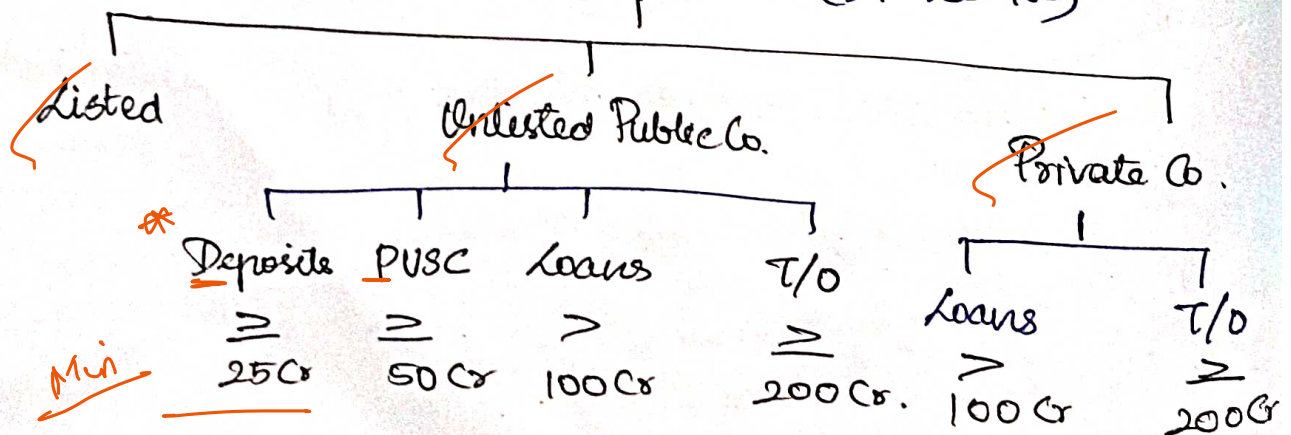 Listed
Unlisted Public Co.
Private Co.
*
Deposits PUSC Loans T/O
≥ ≥ > ≥
25Cr 50 Cr 100 Cr 200 Cr.
Loans T/O
> ≥
100 Cr 200 Cr
Min